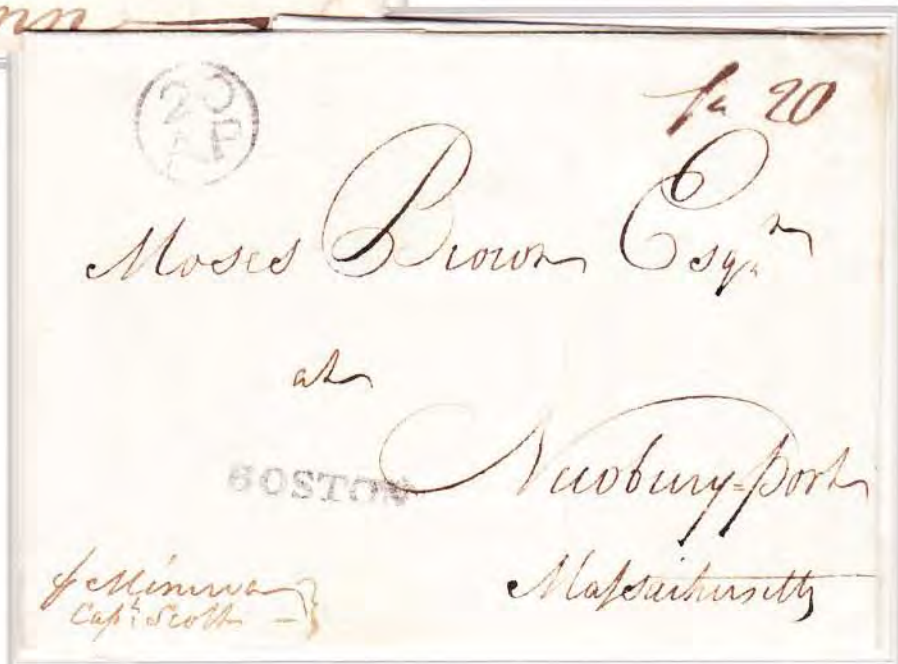 20
AP
Sh 20
Moses Brown Esqr
at
Newbury=Port
BOSTON
Massachusetts
p Minerva
Capt. Scott